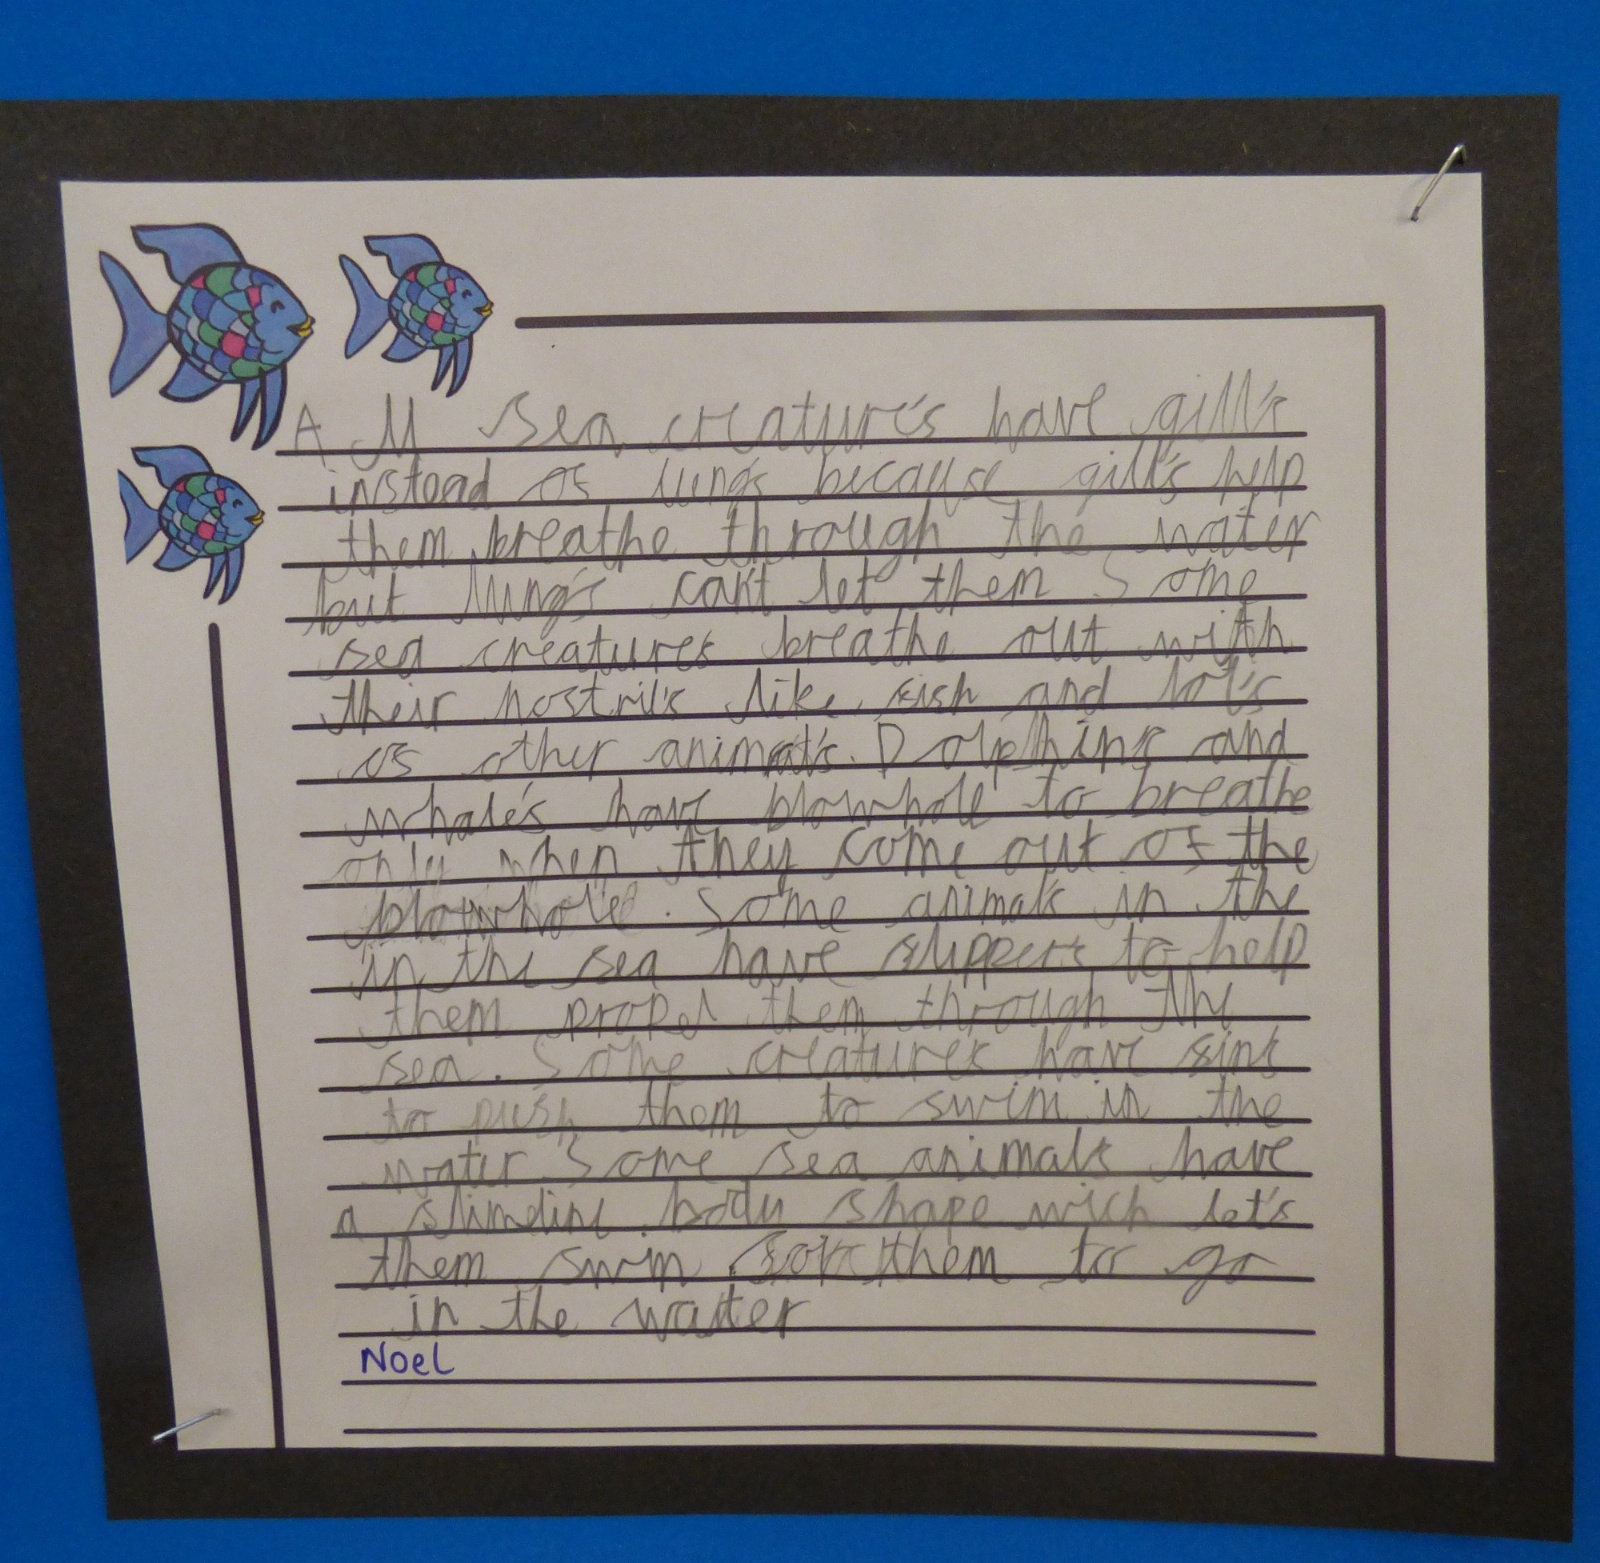 All sea creature's have gill's
instead of lung's because gill's help
them breathe through the water
but lung's can't let them Some
sea creatures breathe out with
their nostril's like fish and lot's
of other animal's. Dolphins and
whale's have blowhole to breathe
only when they come out of the
blowhole. Some animals in the
in the sea have flippers to help
them propel them through the
sea. Some creatures have fins
to push them to swim in the
water Some sea animals have
a slimeline body shape wich let's
them swim for them to go
in the water
Noel